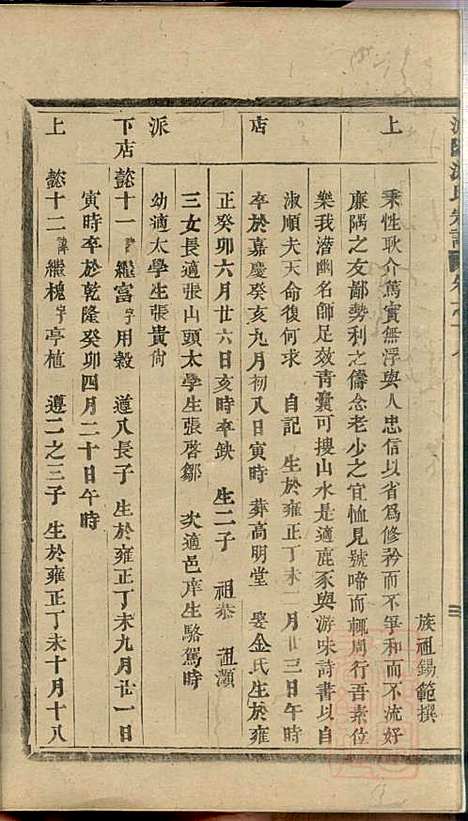 族祖錫範撰
秉性耿介篤實無浮與人忠信以省為修矜而不爭和而不流好
廉隅之友鄙勢利之儔念老少之宜恤見號啼而輒周行吾素位
樂我潛幽名師足效青囊可搜山水是適鹿豕與游味詩書以自
淑順夫天命復何求 自記 生於雍正丁未一月廿三日午時
卒於嘉慶癸亥九月初八日寅時 葬高明堂 娶金氏生於雍
正癸卯六月廿六日亥時卒缺 生二子 祖恭 祖灝
三女長適張山頭太學生張啓鄒 次適邑庠生駱駕時
幼適太學生張貴尙
懿十一諱繼富字用穀 遵八長子 生於雍正丁未九月廿一日
寅時卒於乾隆癸卯四月二十日午時
懿十二諱繼槐字亭植 遵二之三子 生於雍正丁未十月十八
上
店
派
下店
上